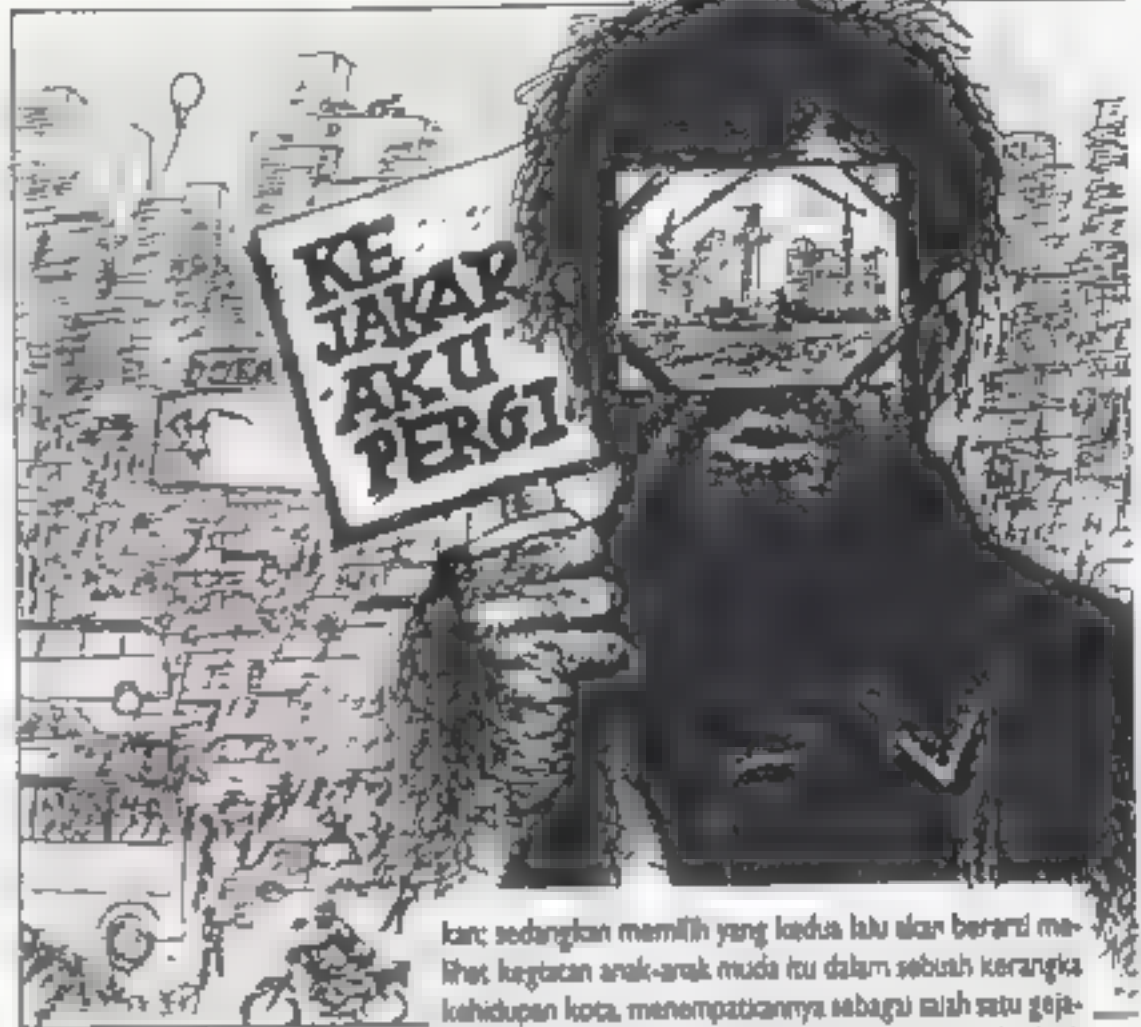 KE
JAKAR
AKU
PERGI
kan; sedangkan memilih yang kedua lalu akan berarti me-
lihat kegiatan anak-anak muda itu dalam sebuah kerangka
kehidupan kota, menempatkannya sebagai salah satu geja-